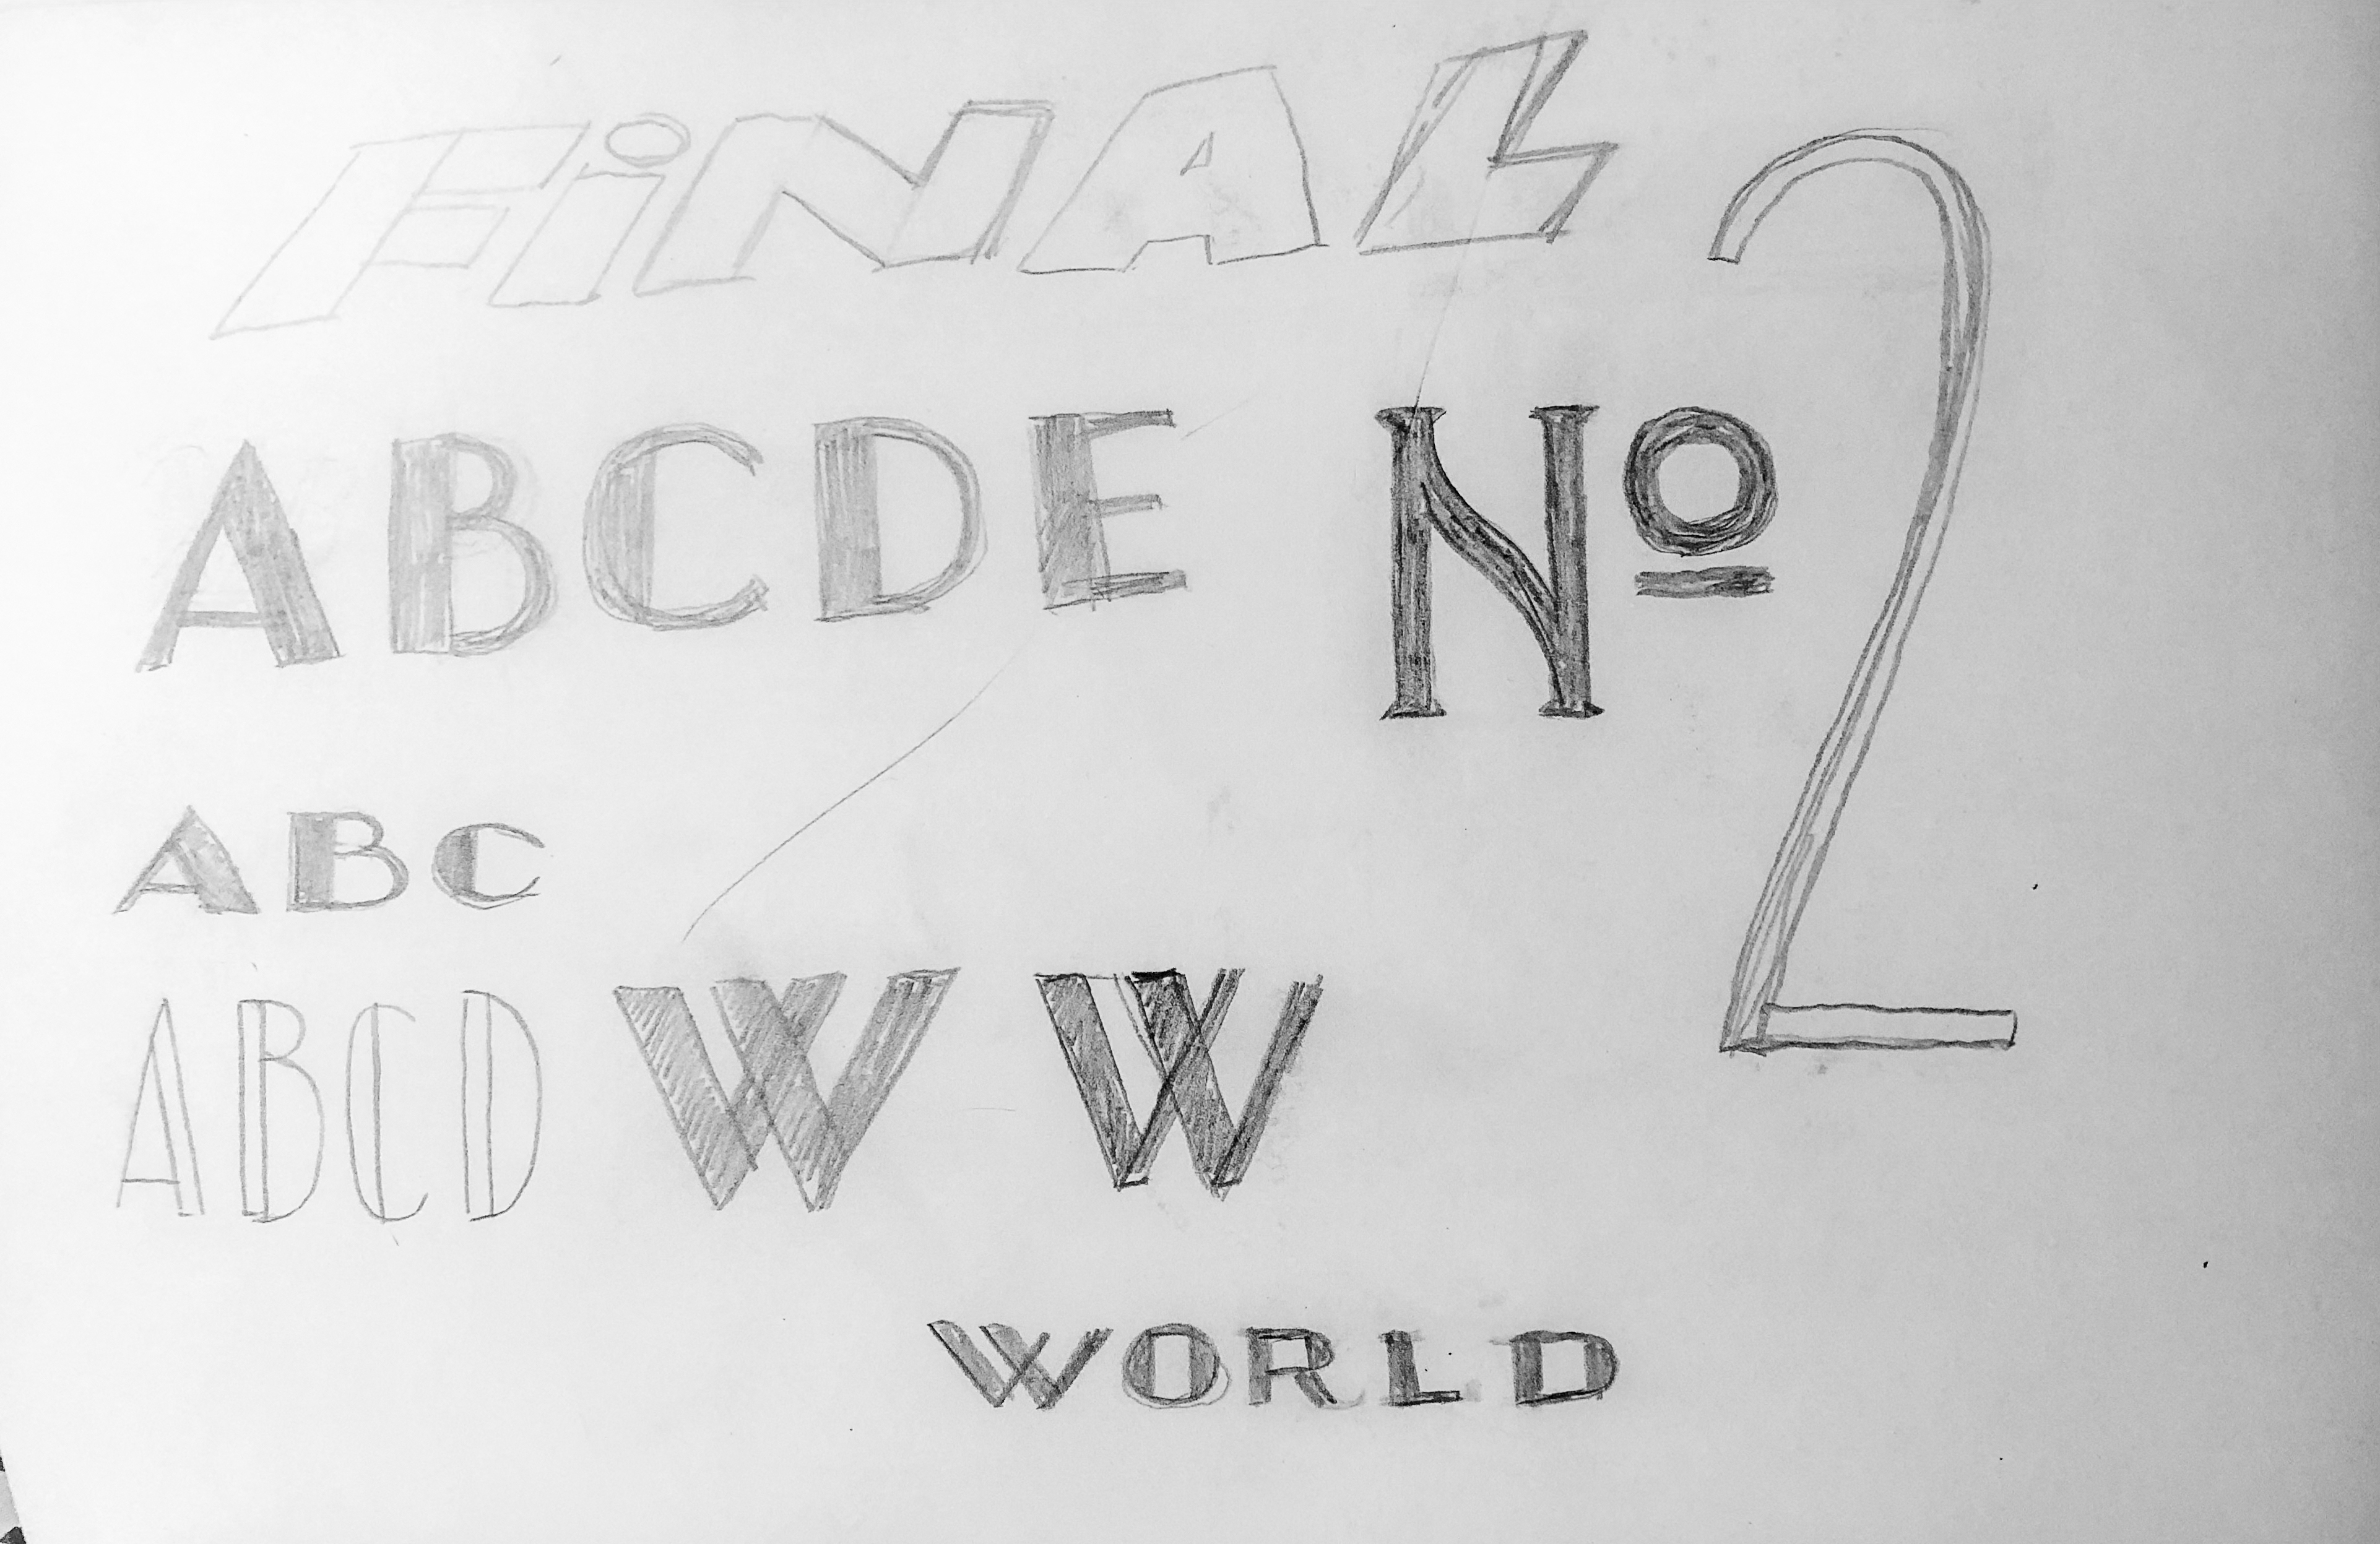 FiNAL
ABCDE
Nº 2
ABC
ABCD W W
WORLD